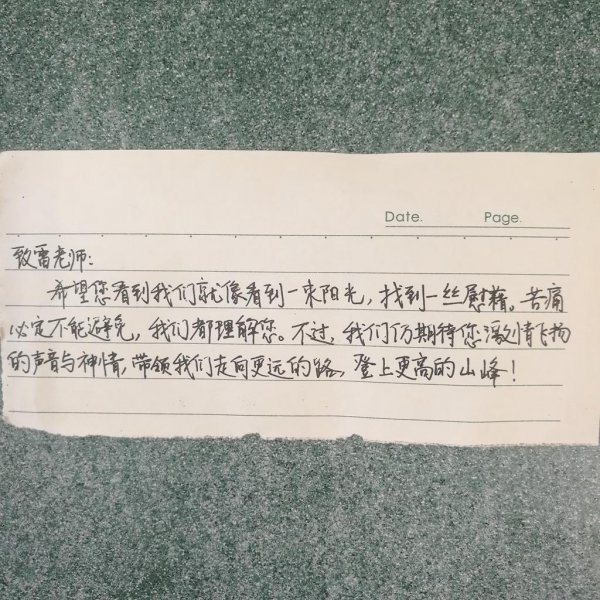 Date. Page.
致雷老师:
希望您看到我们就像看到一束阳光,找到一丝慰藉。苦痛
必定不能避免,我们都理解您。不过,我们仍期待您激情飞扬
的声音与神情,带领我们走向更远的路,登上更高的山峰!